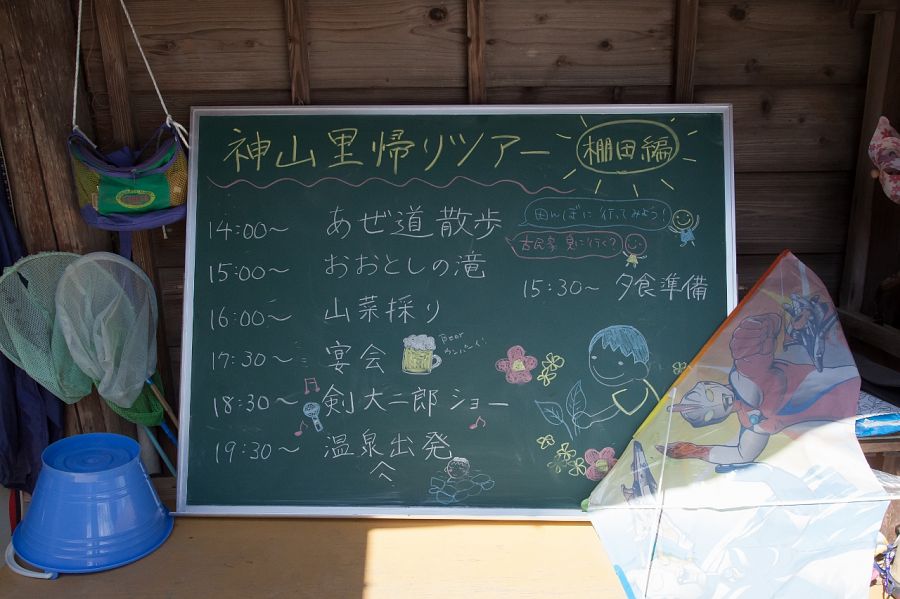 神山里帰りツアー 棚田編
14:00～ あぜ道散歩
田んぼに行ってみよう!
15:00～ おおとしの滝
15:30～ 夕食準備
16:00～ 山菜採り
17:30～ 宴会
Beer
18:30～ 剣大二郎ショー
19:30～ 温泉出発
へ